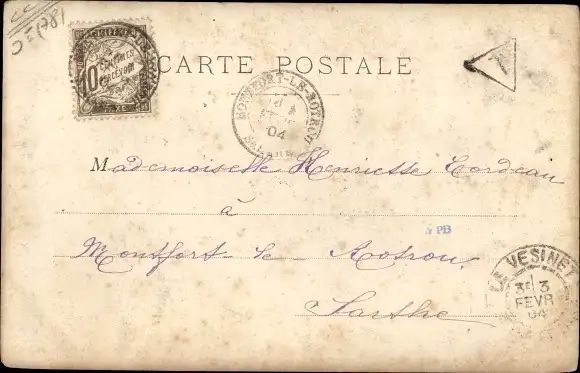 (78)
10
CENTIMES
À PERCEVOIR
CARTE POSTALE
T
MONTFORT-LE-ROTROU
04
SARTHE
Mademoiselle Henriette Cordeau
à
PB
Montfort-le-Rotrou.
Sarthe
LE VESINET
3E 3
FEVR
04